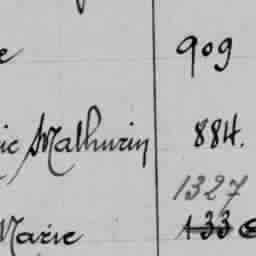 e 909
ic Mathurin 884.
1327
Marie 133